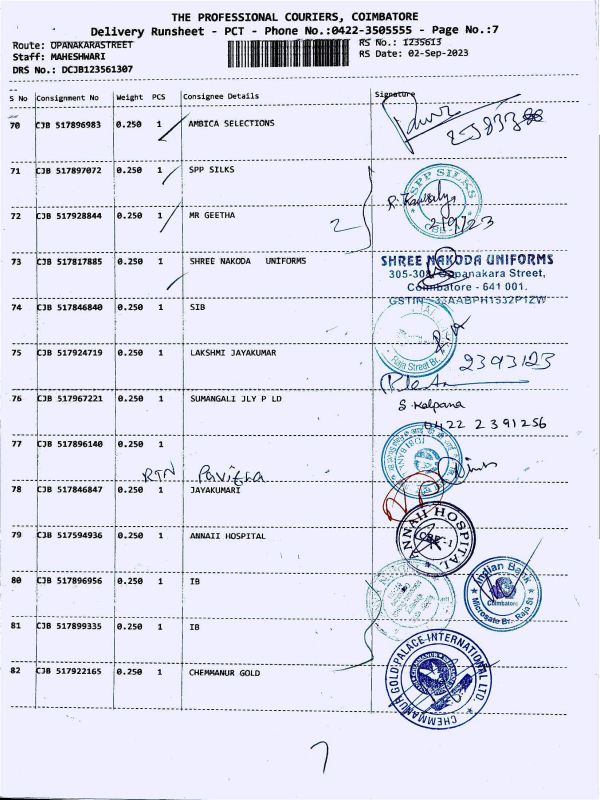 THE PROFESSIONAL COURIERS, COIMBATORE
Delivery Runsheet - PCT - Phone No.:0422-3505555 - Page No.:7
Route: OPANAKARASTREET
RS No.: 1235613
Staff: MAHESHWARI
RS Date: 02-Sep-2023
DRS No.: DCJB123561307
S No Consignment No Weight PCS Consignee Details Signature
70 CJB 517896983 0.250 1 AMBICA SELECTIONS
71 CJB 517897072 0.250 1 SPP SILKS
SPP SILKS
72 CJB 517928844 0.250 1 MR GEETHA
2
73 CJB 517817885 0.250 1 SHREE NAKODA UNIFORMS
SHREE NAKODA UNIFORMS
305-308, Oppanakara Street,
Coimbatore - 641 001.
GSTIN : 33AABPH1532P1ZW
74 CJB 517846840 0.250 1 SIB
Raja Street Br.
75 CJB 517924719 0.250 1 LAKSHMI JAYAKUMAR
2393123
76 CJB 517967221 0.250 1 SUMANGALI JLY P LD
S. Kalpana
0422 2391256
77 CJB 517896140 0.250 1
RTN Pavithra
78 CJB 517846847 0.250 1 JAYAKUMARI
79 CJB 517594936 0.250 1 ANNAII HOSPITAL
ANNAII HOSPITAL
CBE-1
80 CJB 517896956 0.250 1 IB
Indian Bank
Coimbatore
Microsate Br., Raja St
81 CJB 517899335 0.250 1 IB
82 CJB 517922165 0.250 1 CHEMMANUR GOLD
CHEMMANUR GOLD PALACE INTERNATIONAL LTD.
7